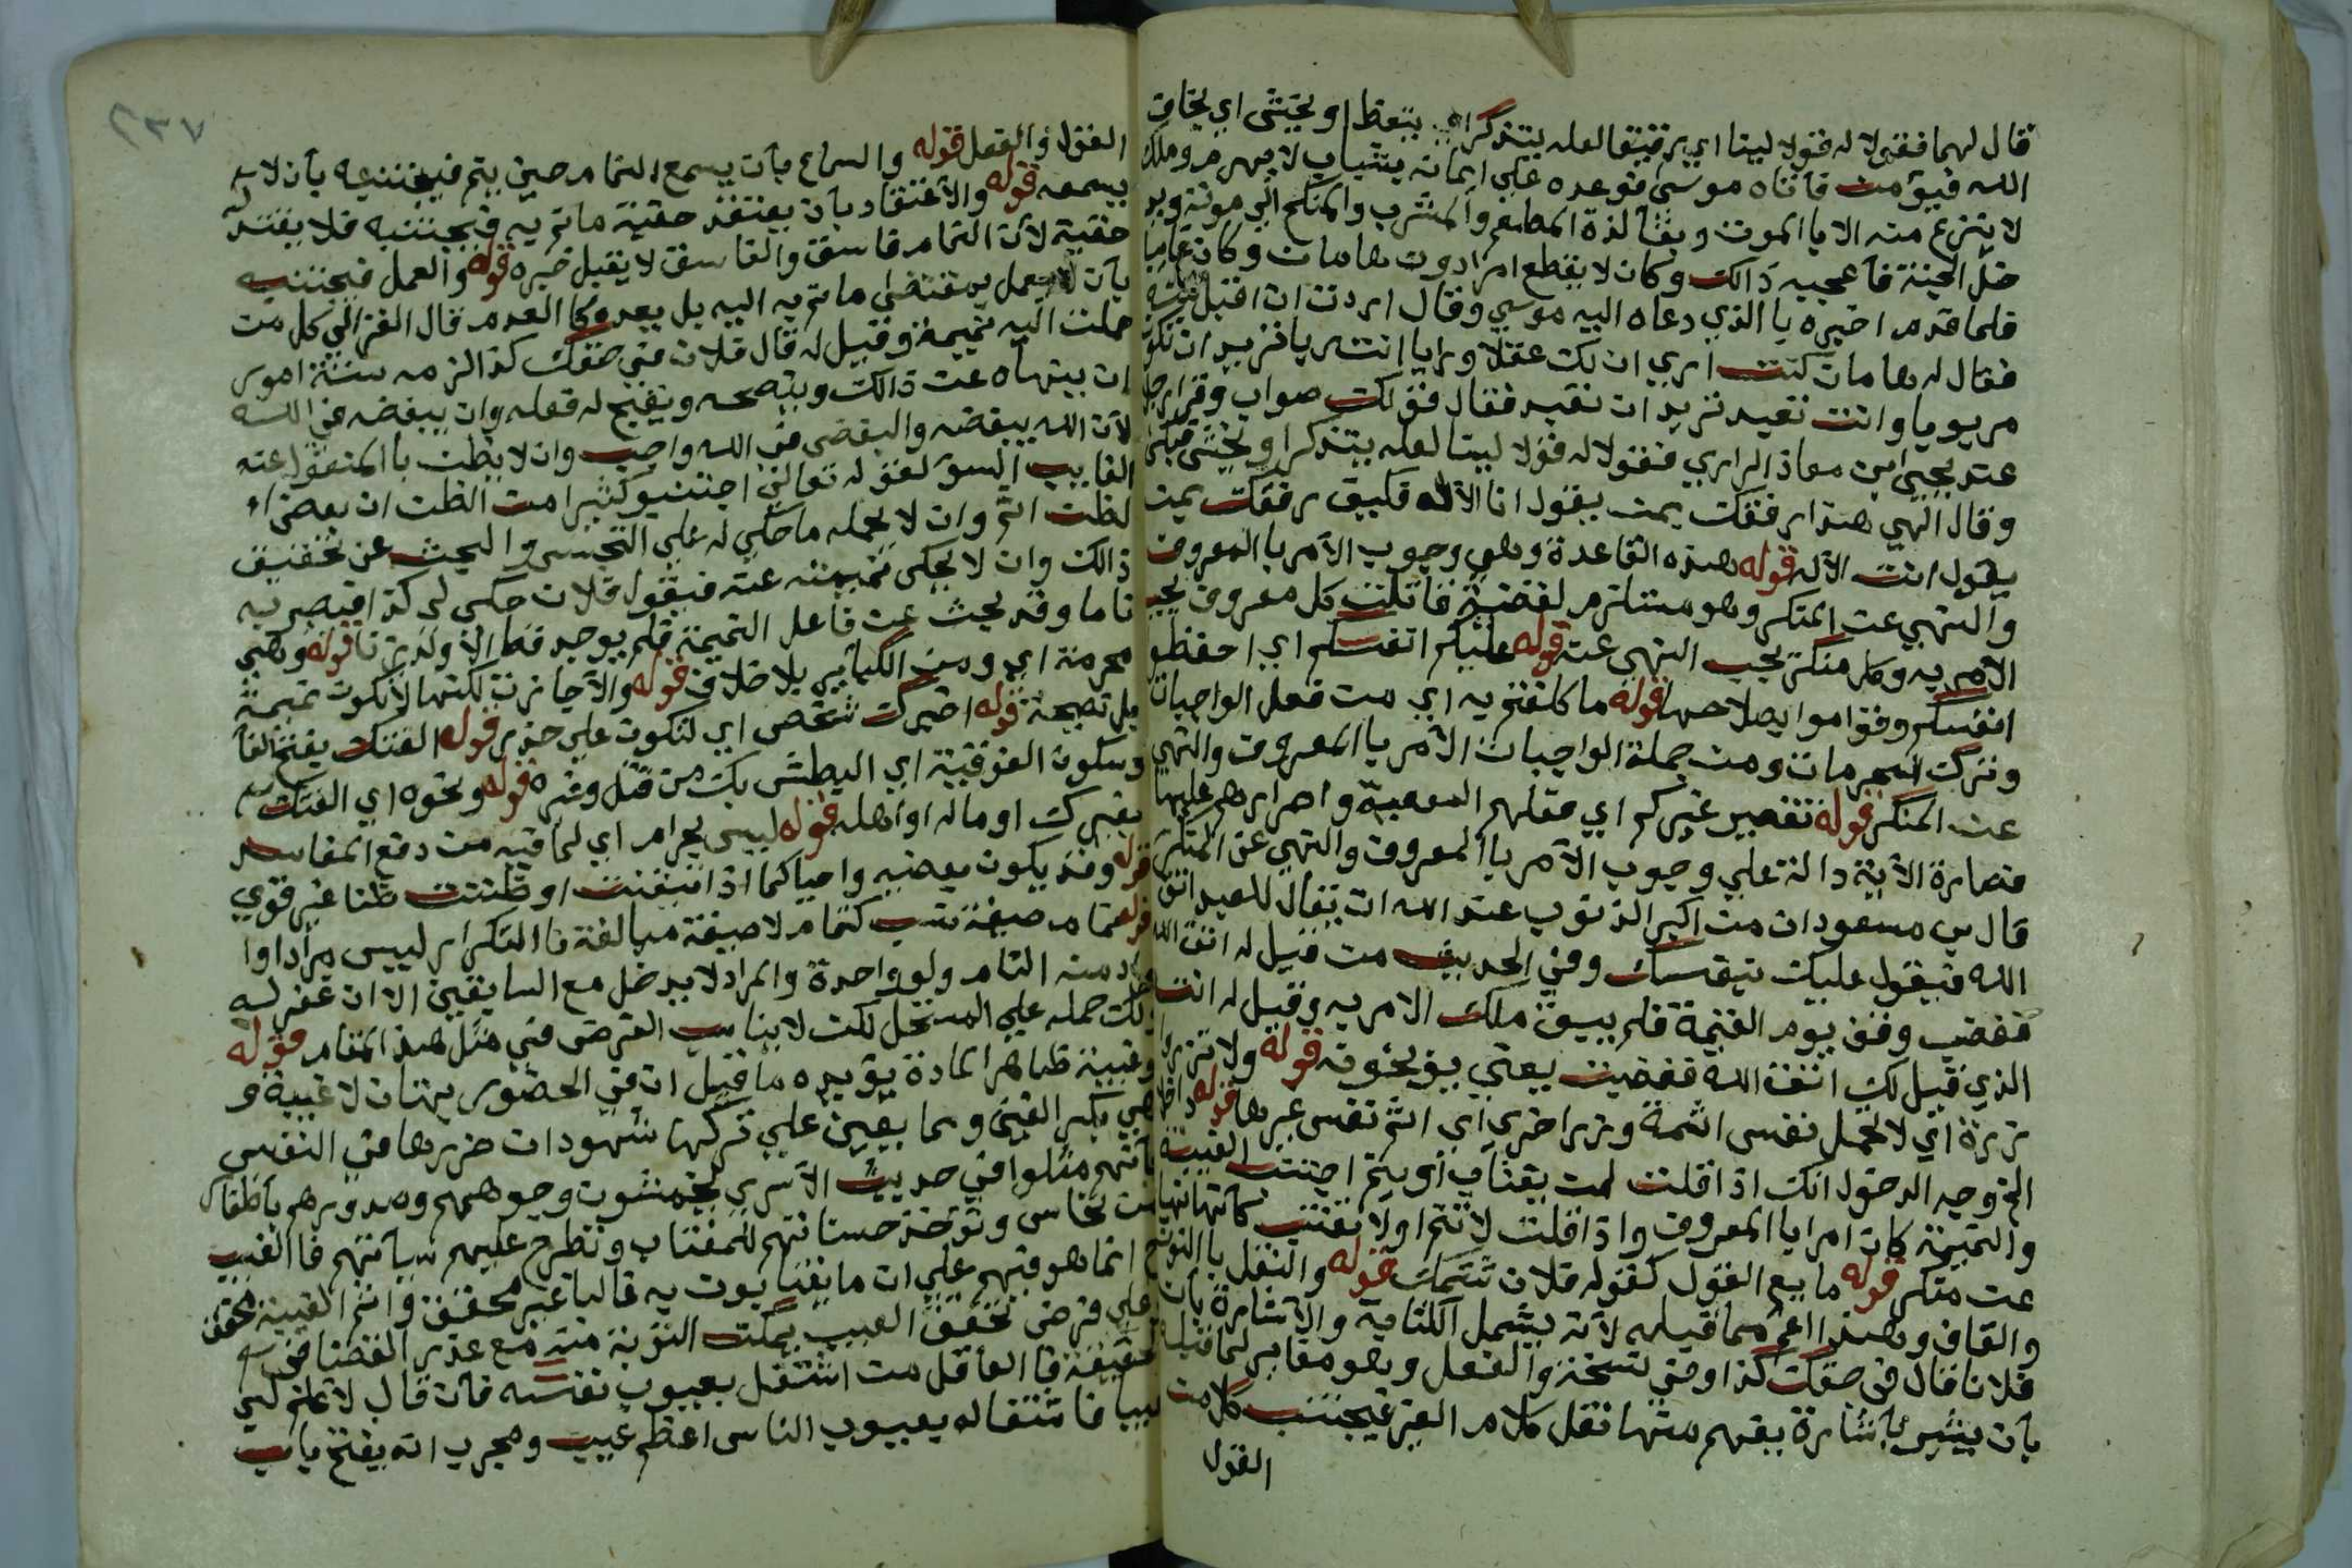 قال لهما فقولا له قولا لينا اي رقيقا لعله يتذكر اي يتعظ او يخشى اي يخاف
الله فيؤمن فأتاه موسى فوعده على ايمانه بشباب لا يهرم وملك
لا ينزع منه الا باالموت وبقآ لذة المطعم والمشرب والمنكح الى موته ويد
خل الجنة فأعجبه ذالك وكان لا يقطع امرا دون هامان وكان غايبا
فلما قدم اخبره باالذي دعاه اليه موسى وقال اردت ان اقبل منه
فقال له هامان كنت ارى ان لك عقلا ورايا انت رب اتريد ان تكون
مربوبا وانت تعبد تريد ان تعبد فقال فق لك صواب وقرا رجل
عند يحيى ابن معاذ الرازي فقولا له قولا لينا لعله يتذكر او يخشى فبكى
وقال الهي هذا رفقك بمن يقول انا الآله فكيف رفقك بمن
يقول انت الآله قوله هذه القاعدة وهي وجوب الآمر باالمعروف
والنهي عن المنكر وهو مستلزم لقضية قائلة كل معروف يجب
الآمر به وكل منكر يجب النهي عنه قوله عليكم انفسكم اي احفظوا
انفسكم وقوموا بصلاحها قوله ما كلفتم به اي من فعل الواجبات
وترك المحرمات ومن جملة الواجبات الآمر باالمعروف والنهي
عن المنكر قوله تقصير غيركم اي فعلهم المعصية واصرارهم عليها
فصارة الآية دالة على وجوب الآمر باالمعروف والنهي عن المنكر
قال بن مسعود ان من اكبر الذنوب عند الله ان يقال للعبد اتق
الله فيقول عليك بنفسك وفي الحديث من قيل له اتق الله
فغضب وقف يوم القيمة فلم يبق ملك الا مر به وقيل له انت
الذي قيل لك اتق الله فغضبت يعني يوبخونه قوله ولا تزر وا
زرة اي لا تحمل نفس اثمة وزر اخرى اي اثم نفس غيرها قوله
الخ وجه الدخول انك اذا قلت لمن يغتاب او ينم اجتنب الغيبة
والنميمة كان امرا باالمعروف واذا قلت لا تنم او لا تغتب كان نهيا
عن منكر قوله ما يع القول كقوله فلان شتمك قوله والنقل باالنون
والقاف وهذا اعم مما قبله لآنه يشمل الكتابة والآشارة بأن
فلانا قال في حقك كذا وفي نسخة والفعل وهو مغاير لما قبله
بأن يشير بأشارة يفهم منها نقل كلام الغير فيجتنب كل من
القول
القول والفعل قوله والسماع بأن يسمع النمام حين ينم فيجتنبه بأن لا
يسمعه قوله والآعتقاد بأن يعتقد حقية ما نم به فيجتنبه فلا يعتقد
حقية لآن النمام فاسق والفاسق لا يقبل خبره قوله والعمل فيجتنبه
بأن لا يعمل بمقتضى ما نم به اليه بل يعده كا العدم قال الغزالي كل من
حملت اليه نميمة وقيل له قال فلان في حقك كذا لزمه ستة امور
ان ينهاه عن ذالك وينصحه ويقبح له فعله وان يبغضه في الله
لآن الله يبغضه والبغض في الله واجب وان لا يظن باالمنقول عنه
الغايب السؤ لقوله تعالى اجتنبو كثيرا من الظن ان بعض ا
لظن اثم وان لا يحمله ما حكي له على التجسس والبحث عن تحقيق
ذالك وان لا يحكى نميمته عنه فيقول فلان حكى لي كذا فيصير به
نماما وقد بحث عن فاعل النميمة فلم يوجد قط الا ولد زنا قوله وهي
محرمة اي ومن الكبآير بلا خلاف قوله والآ جازت لكنها لآ تكون نميمة
بل نصيحة قوله اخبرك شخص اي لتكون على حذر قوله الفتك بفتح الفآ
وسكون الفوقية اي البطش بك من قتل وغيره قوله ونحوه اي الفتك
بغيرك او ماله او اهله قوله ليس بحرام اي لما فيه من دفع المفاسد
قوله وقد يكون بعضه واجبا كما اذا تيقنت او ظننت ظنا غير قوي
قوله نمام صيغة نسب كتمام لا صيغة مبالغة فا التكرار ليس مرادا وا
لمراد منه النام ولو واحدة والمراد لا يدخل مع السابقين الا ان غفر له
ولك حمله على المستحل لكن لا يناسب الغرض في مثل هذا المقام قوله
وغيبة ظاهر المادة يؤيده ما قيل ان في الحضور بهتان لا غيبة و
هي بكسر الغين ومما يعين على تركها شهود ان ضررها في النفس
لآنهم مثلوا في حديث الآسرى يخمشون وجوههم وصدورهم بأظفار
من نحاس وتؤخذ حسناتهم للمغتاب وتطرح عليهم سيأتهم فا العيب
انما هو فيهم على ان ما يغتابون به غالبا غير محقق واثم الغيبة محقق
وعلى فرض تحقق العيب يمكن التوبة منه مع عذر القضا في
الحقيقة فا العاقل من اشتغل بعيوب نفسه فأن قال لا علم لي
عيبا فاشتغاله بعيوب الناس اعظم عيب ومجرب انه يفتح باب